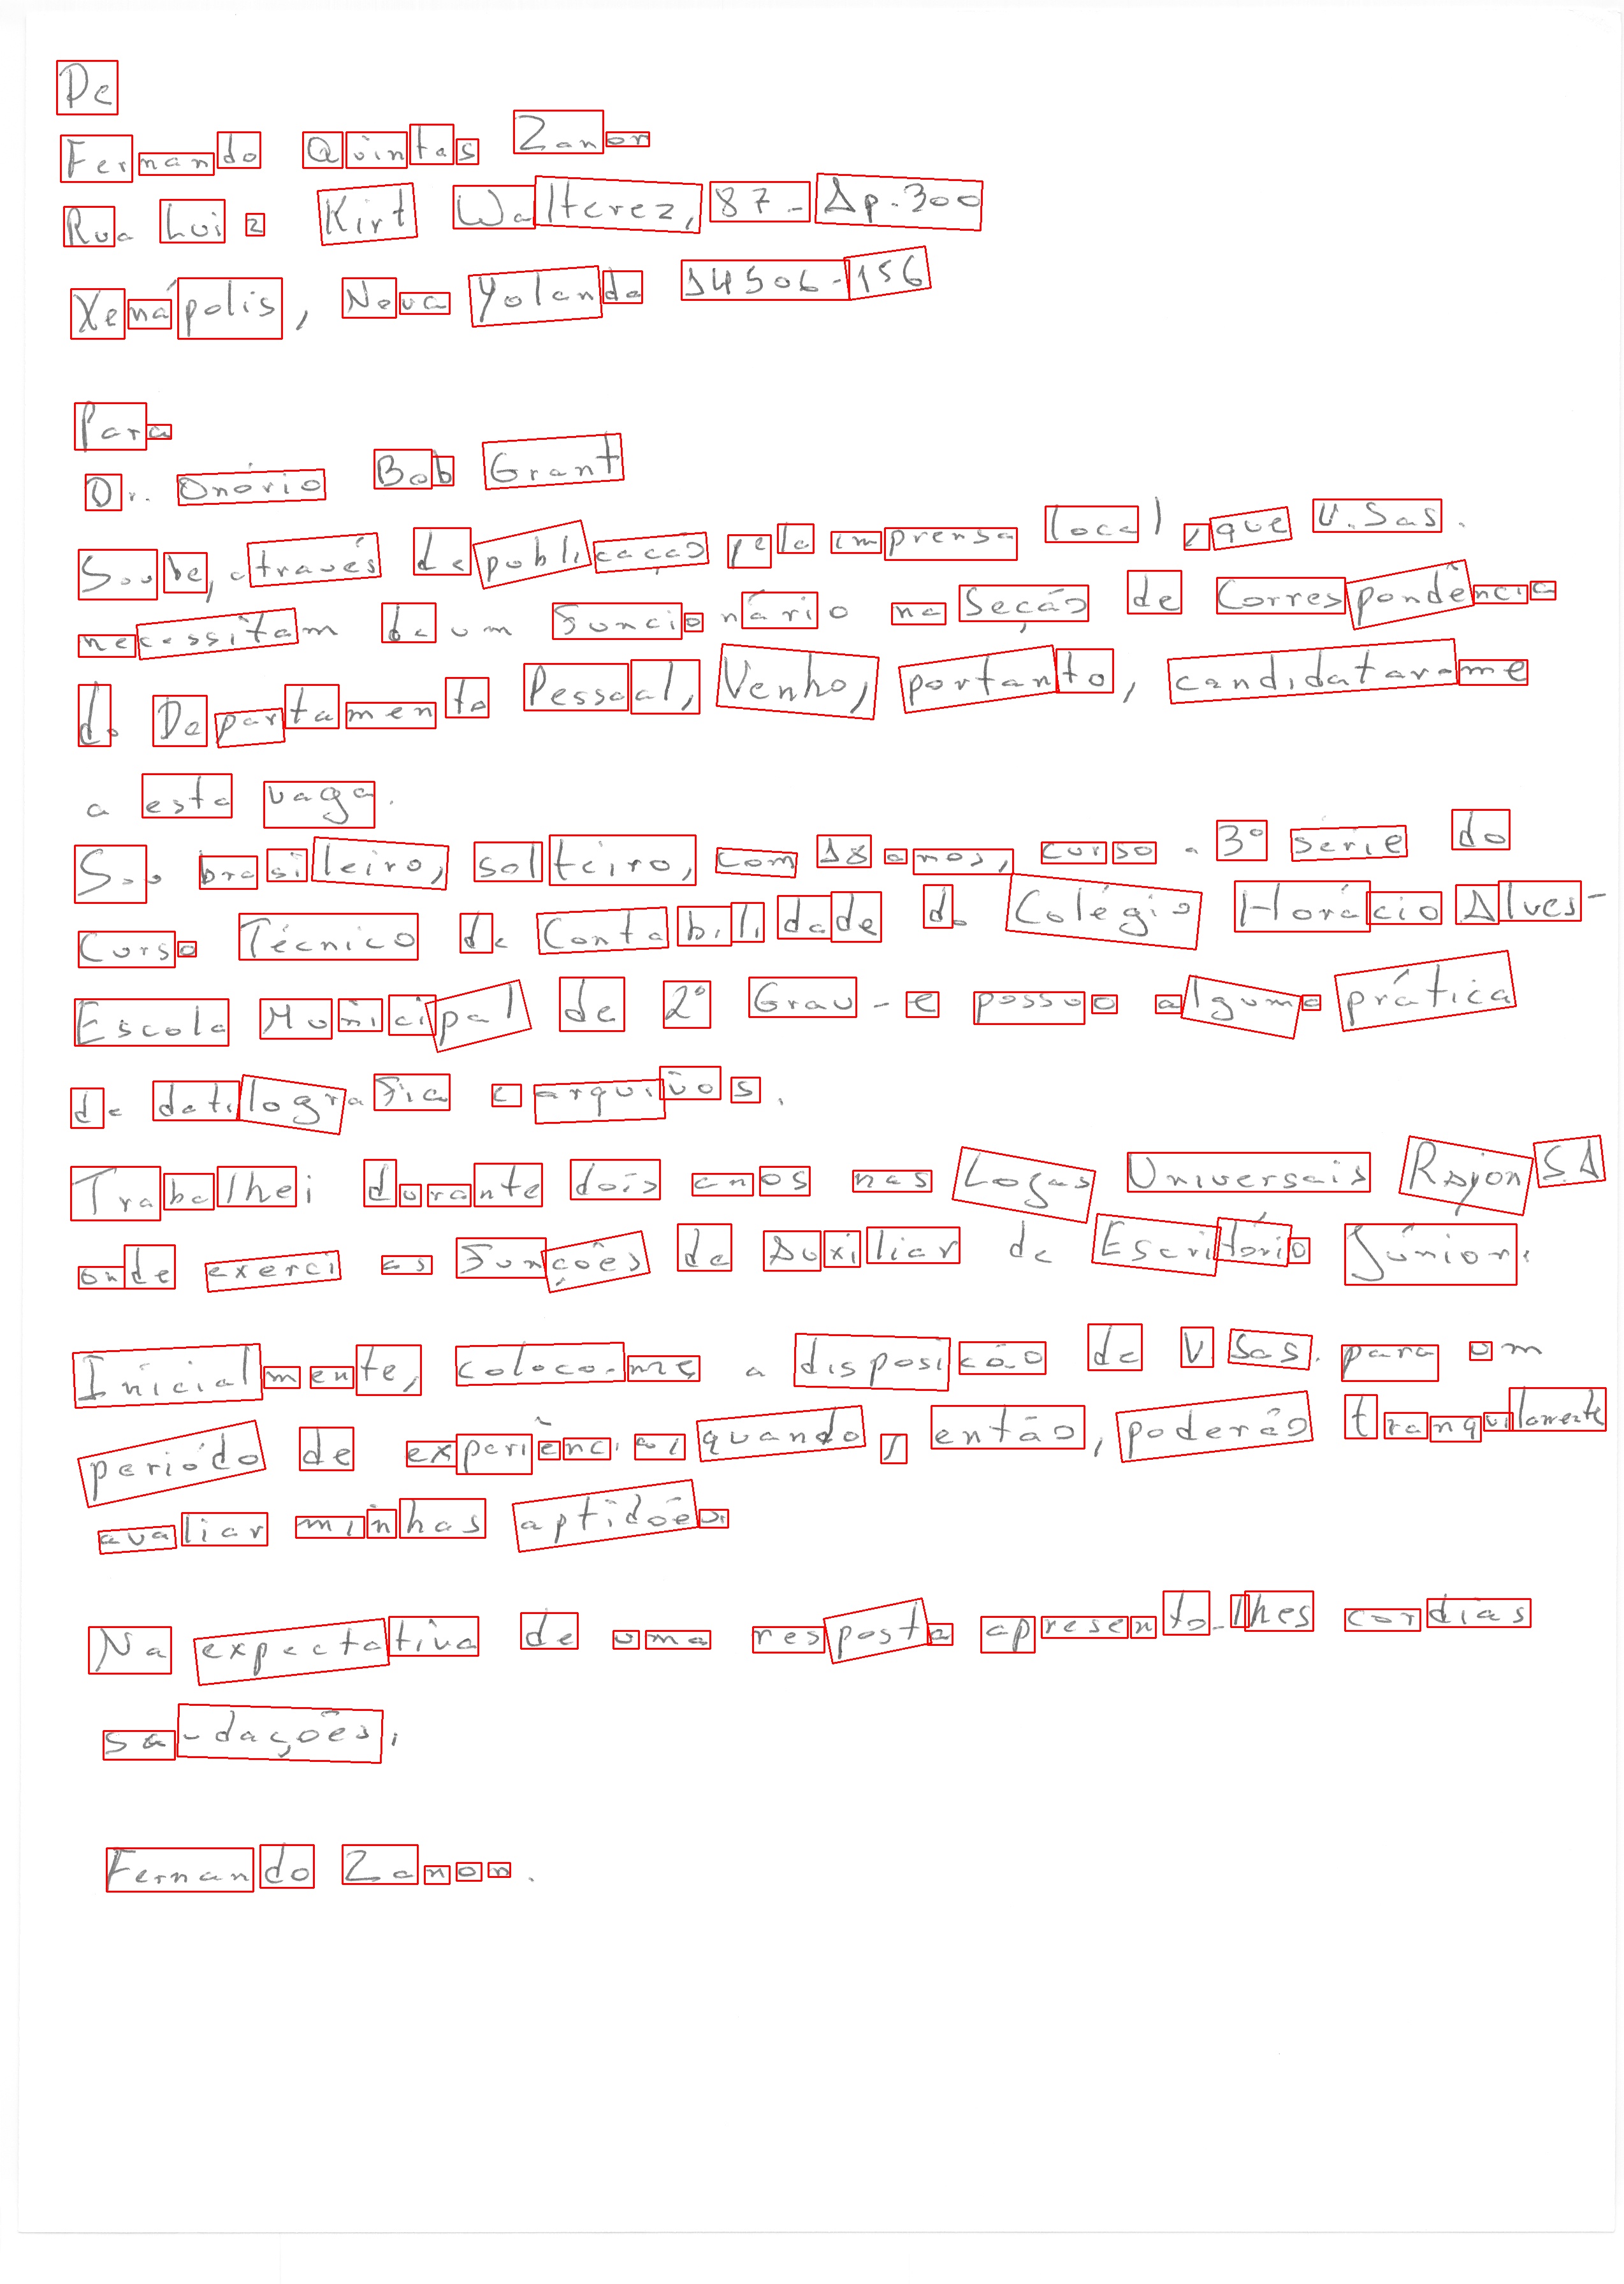 De
Fernando Quintas Zanon
Rua Luiz Kirt Walterez, 87 - Ap. 300
Xenápolis, Nova Yolanda 14506-156
Para
Dr. Onório Bob Grant
Soube, através de publicação pela imprensa local, que V. Sas.
necessitam de um funcionário na Seção de Correspondência
do Departamento Pessoal, Venho, portanto, candidatar-me
a esta vaga.
Sou brasileiro, solteiro, com 18 anos, curso a 3º série do
Curso Técnico de Contabilidade do Colégio Horácio Alves -
Escola Municipal de 2º Grau - e possuo alguma prática
de datilografia e arquivos.
Trabalhei durante dois anos nas Logas Universais Rajon SA
onde exerci as funções de Auxiliar de Escritório Júnior.
Inicialmente, coloco-me a disposição de V. Sas. para um
periódo de experiência, quando, então, poderão tranquilamente
avaliar minhas aptidões.
Na expectativa de uma resposta apresento-lhes cordias
saudações.
Fernando Zanon.